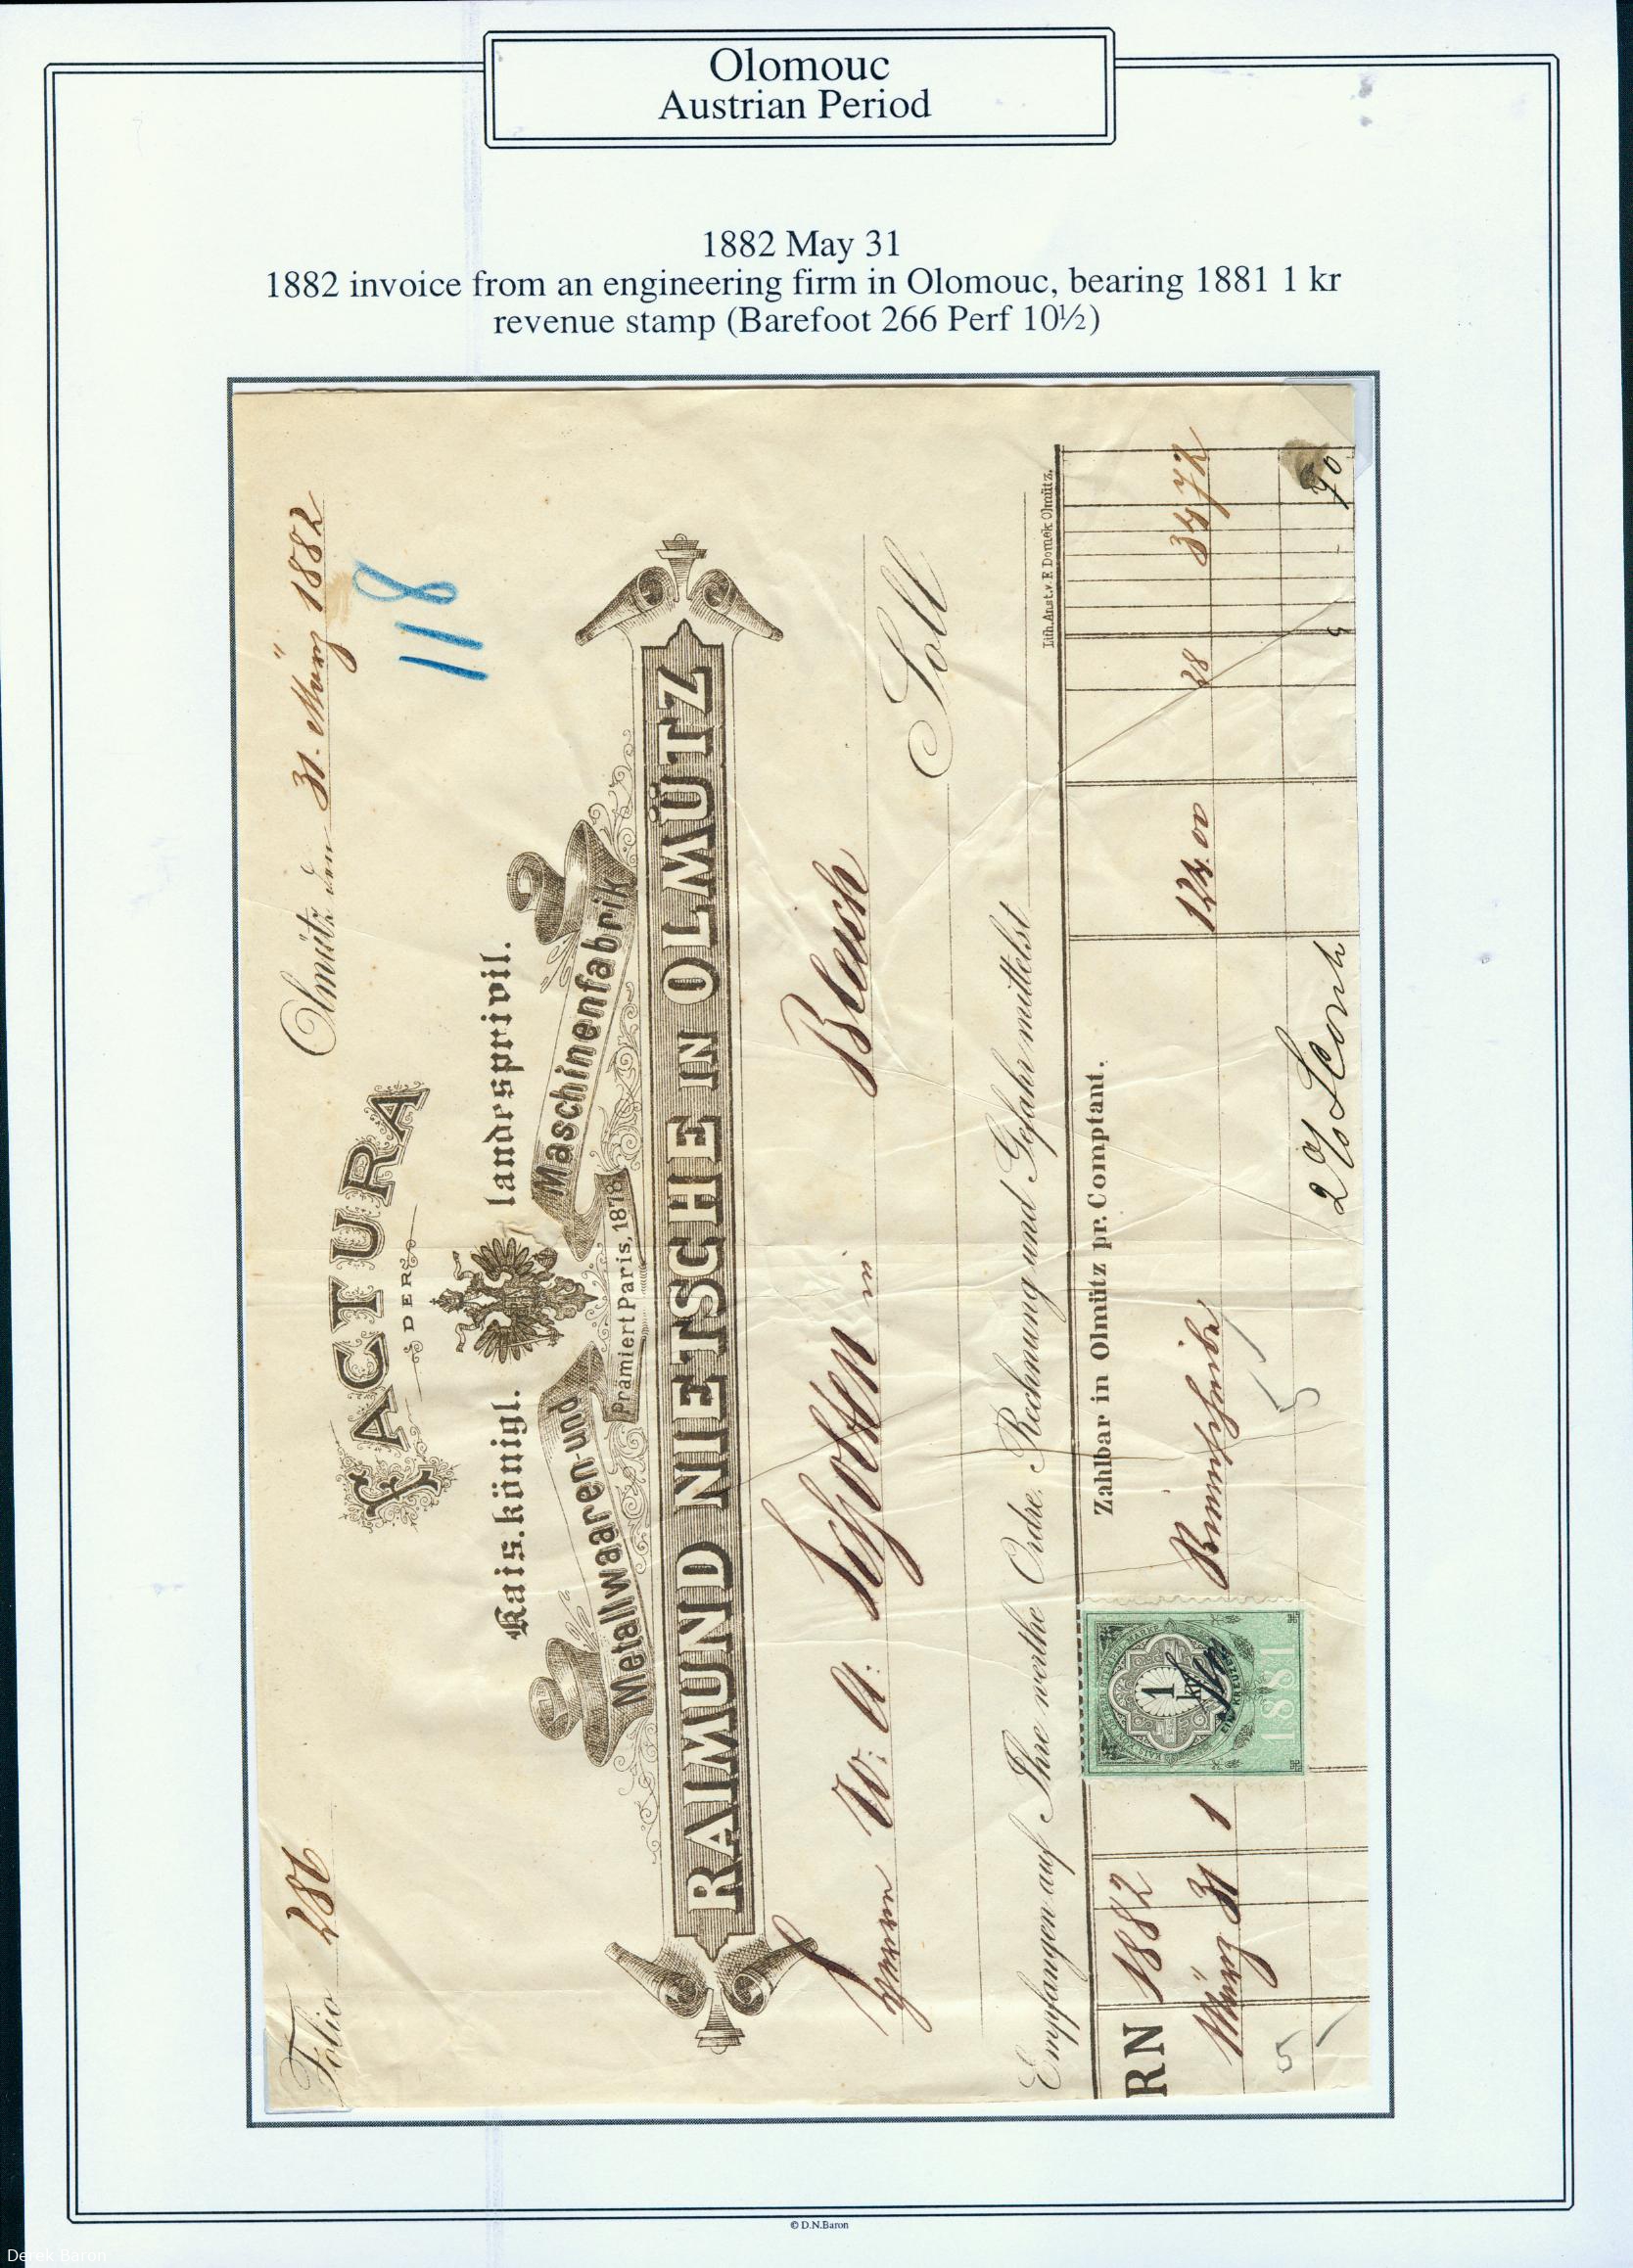 Olomouc
Austrian Period
1882 May 31
1882 invoice from an engineering firm in Olomouc, bearing 1881 1 kr
revenue stamp (Barefoot 266 Perf 10½)
Folio 286
Olmütz den 31. März 1882
118
FACTURA
DER
Kais. königl. landesprivil.
Metallwaaren-und Maschinenfabrik
Prämiert Paris, 1878
RAIMUND NIETSCHE IN OLMÜTZ
Herrn W. A. Scholten in Bleich
Soll
Empfangen auf Ihre werthe Ordre, Rechnung und Gefahr mittelst
Lith. Anst. v. F. Domek Olmütz.
Zahlbar in Olmütz pr. Comptant.
RN 1882
März 31 1 28
1
kr
EIN KREUZER
1881
2% Sconto 70
5
© D.N.Baron
Derek Baron